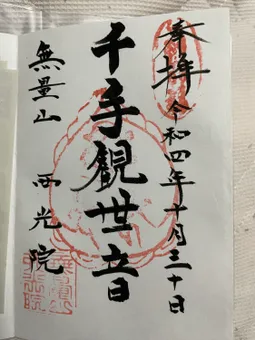 奉拝
令和四年十月三十日
千手観世音
無量山 西光院